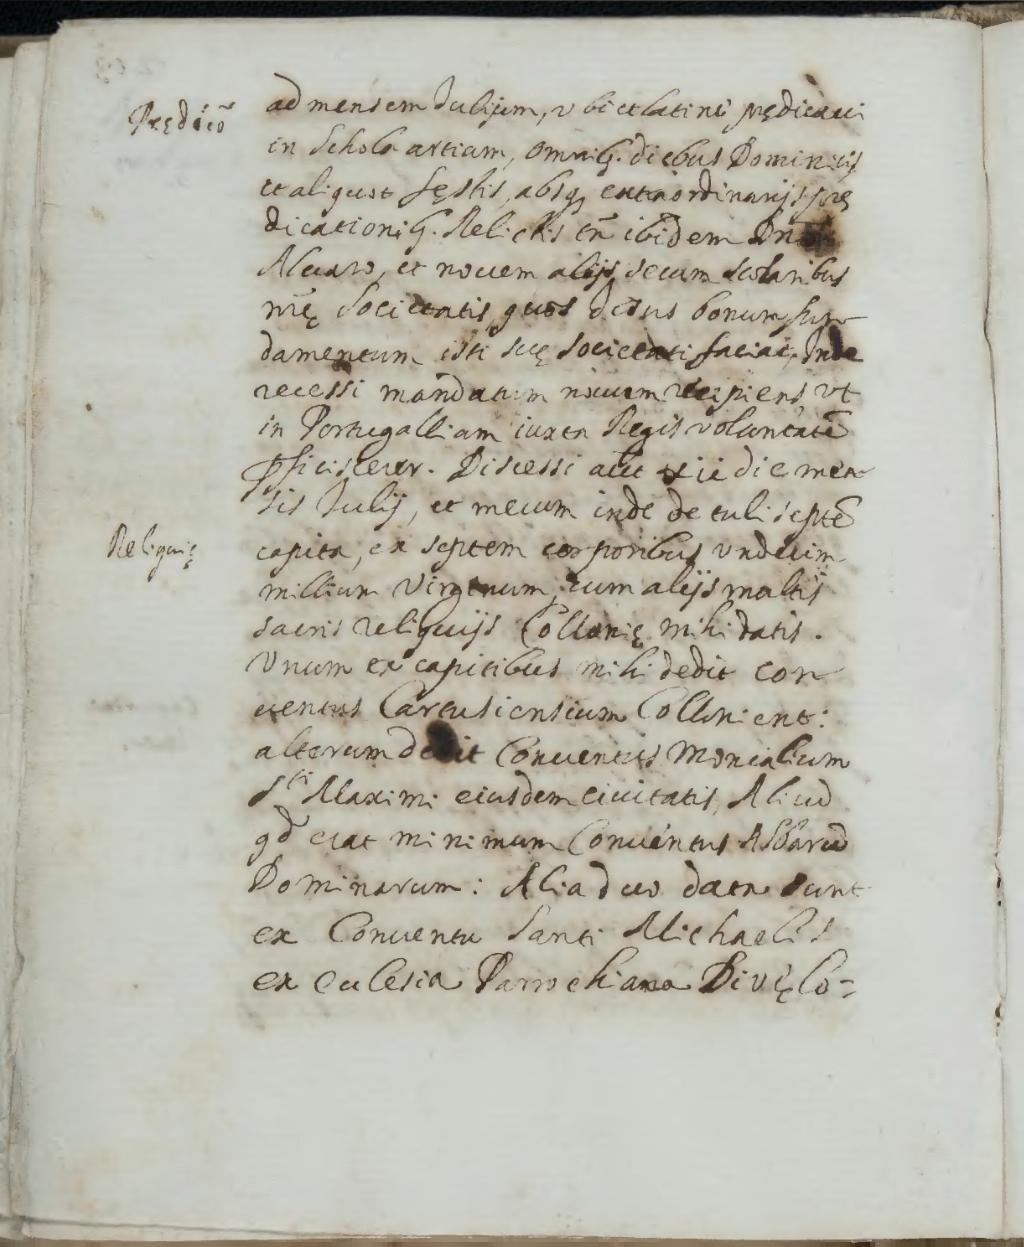 Prędicō
ad mensem Julijum, vbi et latine prędicaui
in Schola artium, omnibꝫ diebus Dominicis
et aliquot fęstis, absqꝫ extraordinarijs prę
dicationibꝫ. Relictis tñ ibidem Dno
Aluaro, et nouem alijs secum scolaribus
nrę Societatis, quos deus bonum fun-
damentum isti suę societati faciat, Inde
recessi mandatum nouum recipiens vt
in Portugalliam iuxta Regis voluntatē
ꝓficiscerer. Discessi aūt xii die men
sis Julij, et mecum inde detuli septē
Reliquię
capita, ex septem corporibus vndecim
millium Virginum, cum alijs multis
sacris reliquijs Collonię mihi datis.
Vnum ex capitibus mihi dedit con
uentus Cartusiensium Colloniens:
alterum dedit Conuentus Monialium
Sti Maximi eiusdem ciuitatis, Aliud
qd erat minimum Conuentus Albarū
Dominarum: Alia duo data sunt
ex Conuentu Santi Michaelis
ex eclesia Parrochiana Diuę Co=